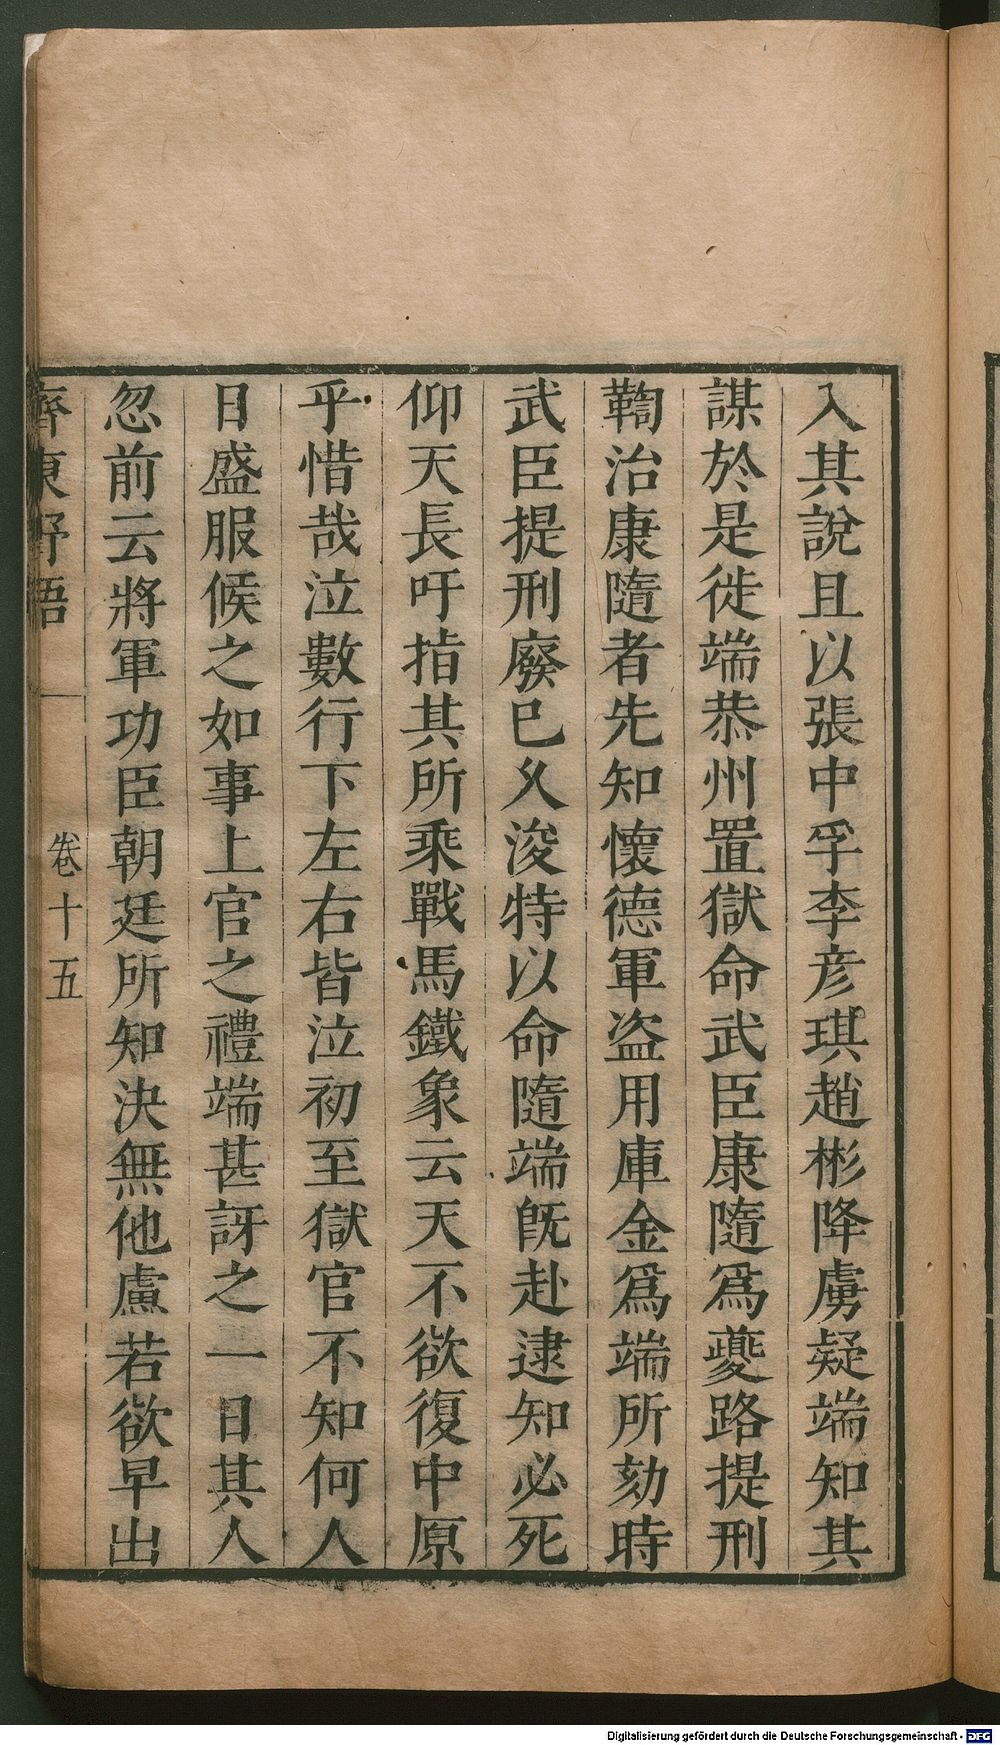 入其說且以張中孚李彥琪趙彬降虜疑端知其
謀於是徙端恭州置獄命武臣康隨爲夔路提刑
鞫治康隨者先知懷德軍盜用庫金爲端所劾時
武臣提刑廢已久浚特以命隨端旣赴逮知必死
仰天長吁指其所乘戰馬鐵象云天不欲復中原
乎惜哉泣數行下左右皆泣初至獄官不知何人
日盛服候之如事上官之禮端甚訝之一日其人
忽前云將軍功臣朝廷所知決無他慮若欲早出
齊東野語
卷十五
Digitalisierung gefördert durch die Deutsche Forschungsgemeinschaft - DFG